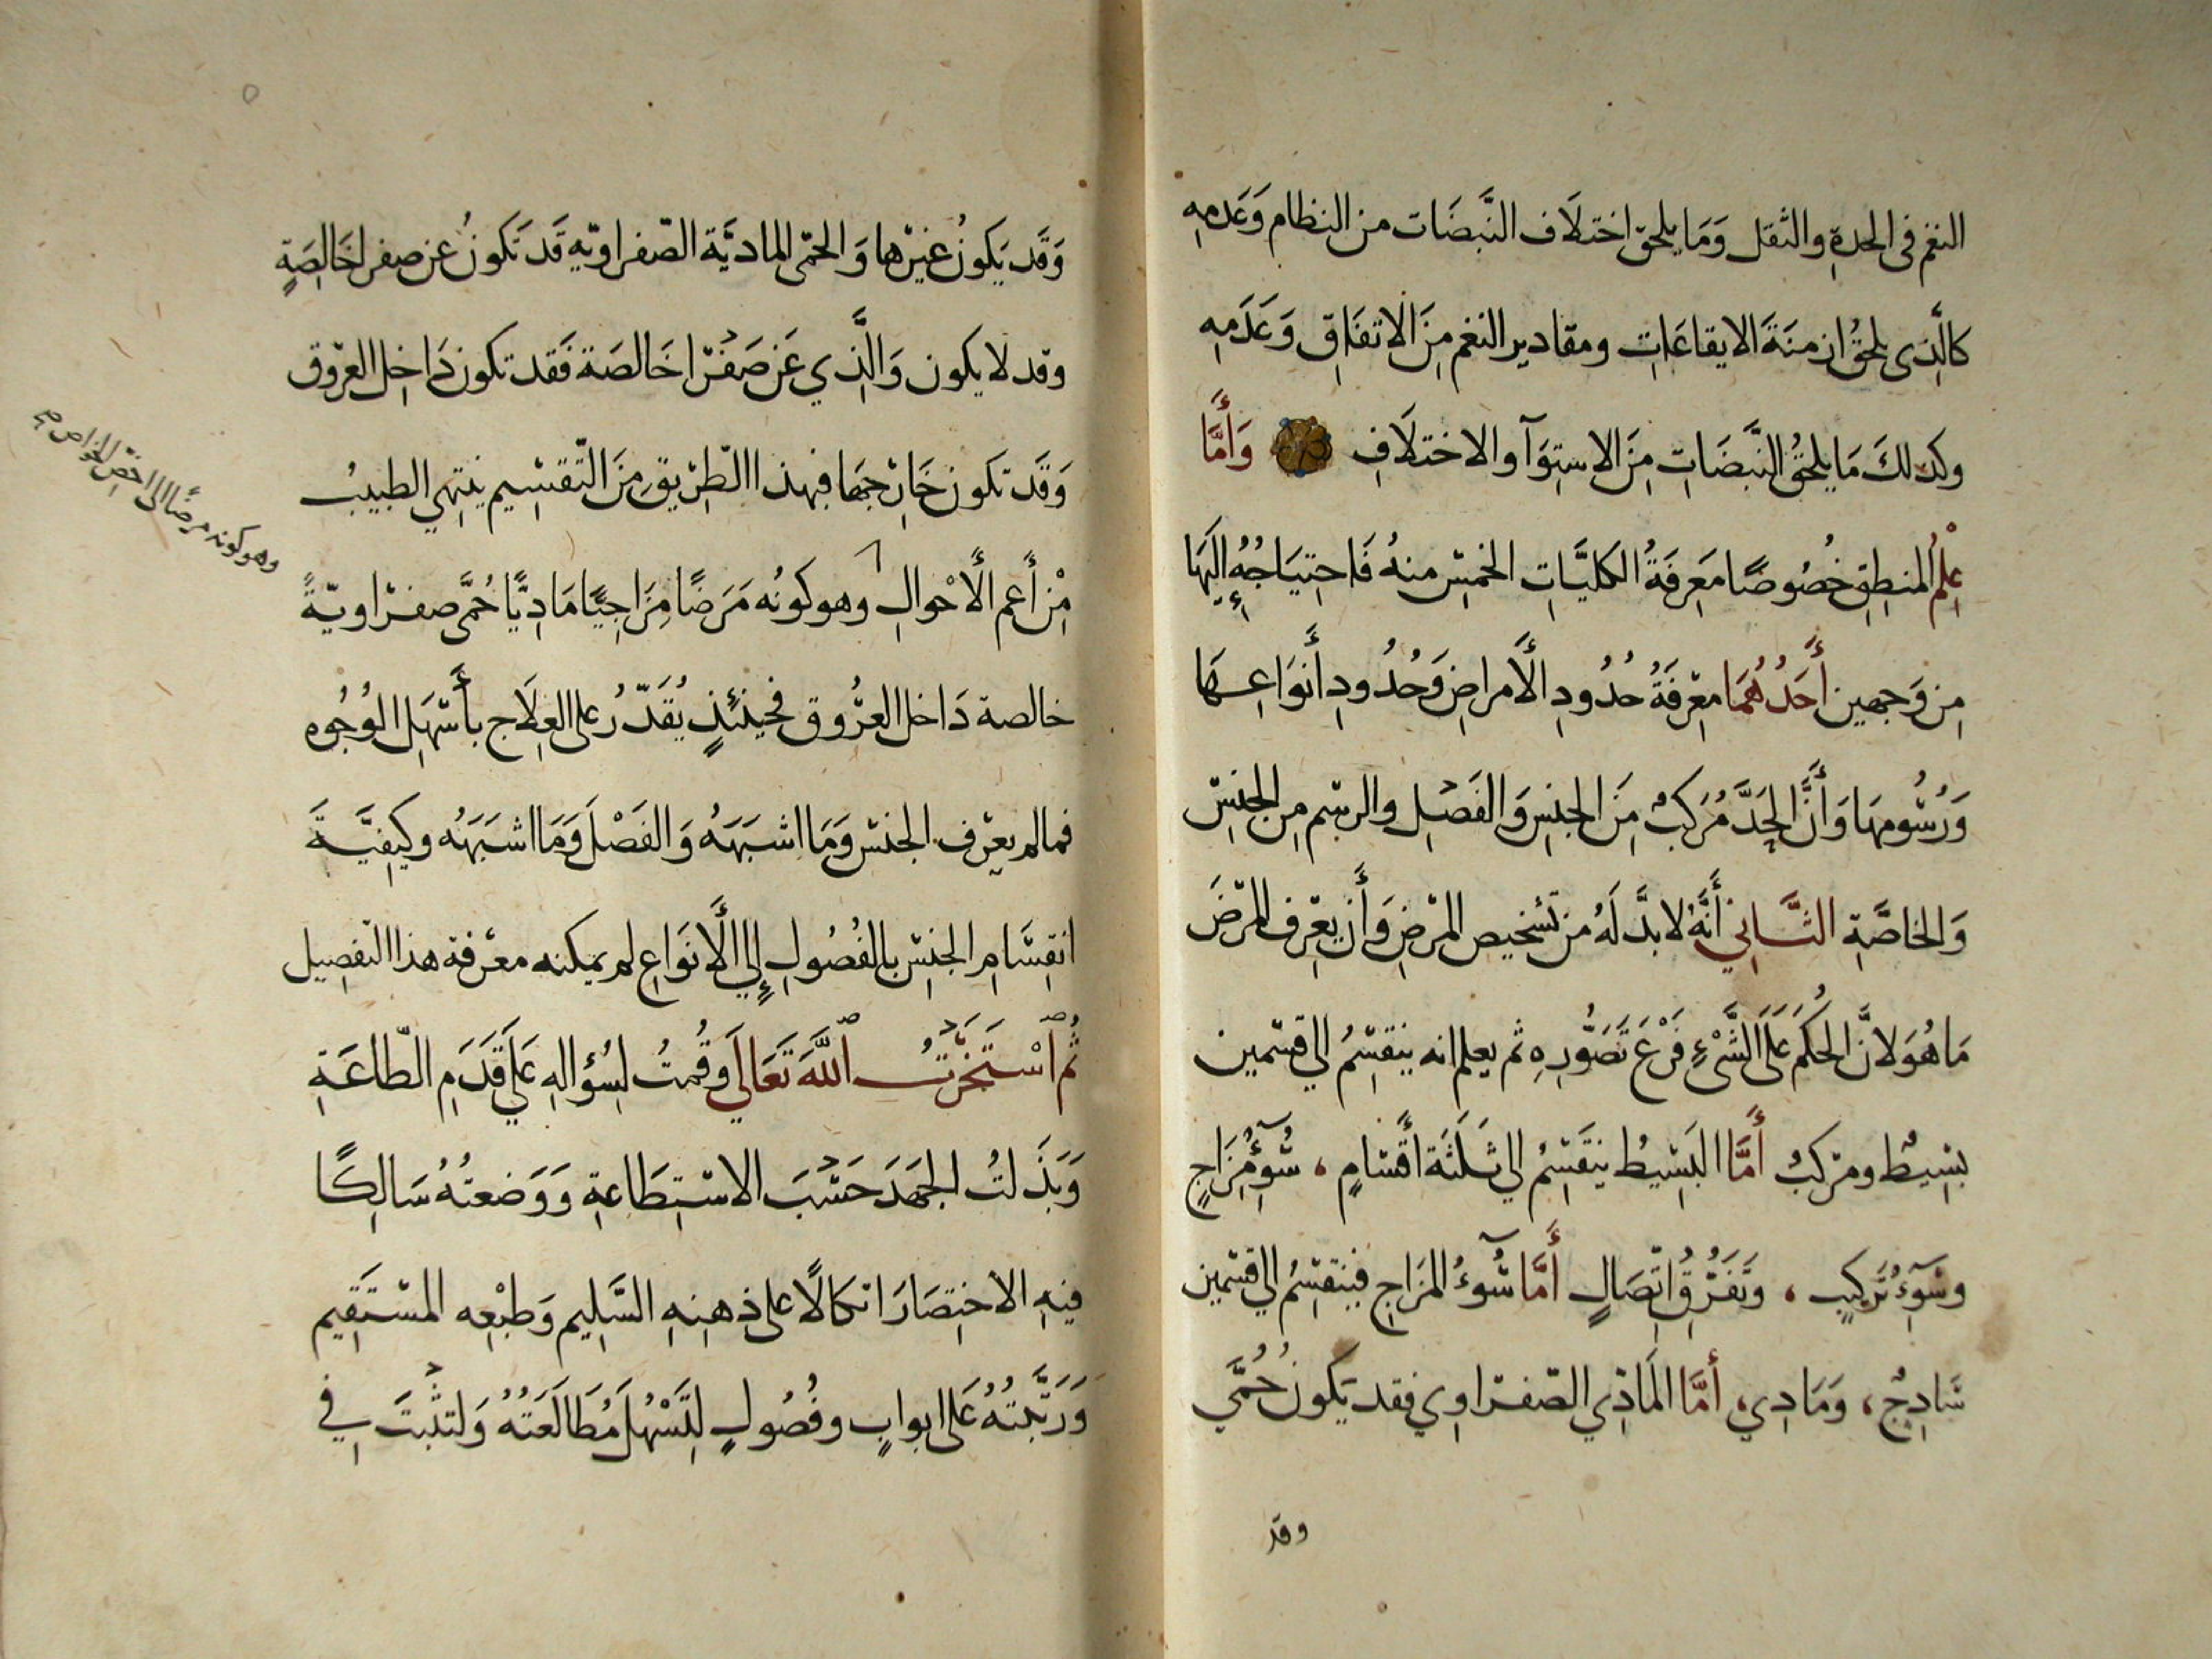 النغم فى الحدةِ والثقل وَمَا يلحق اختلَاف النَّبضَات من النظام وَعَدمِهِ
كالَّذِى يلحقُ ازمنَةَ الايقاعَاتِ ومقادير النغم مِنَ الاتفَاقِ وَعَدَمِهِ
وكذلكَ مَا يلحقُ النَّبضَاتِ مِنَ الاستِوَآ والاختلَافِ وَأَمَّا
عِلْمُ المنطِقِ خُصُوصًا مَعرِفَةُ الكليَّاتِ الخمسِ منهُ فَاحتيَاجُهُ إِليَهَا
مِن وَجهين أَحَدُهُمَا معْرِفَةُ حُدُودِ الأَمراضِ وَحُدُودِ أَنوَاعِهَا
وَرُسُومِهَا وَأَنَّ الحَدَّ مُرَكبٌ مِنَ الجنسِ وَالفَصْلِ والرسْمِ مِن الجنسِ
وَالخاصَّةِ الثَّانِي أَنَّهُ لابدَّ لَهُ من تشخيص المرَضِ وَأَن يعْرِف المرَضَ
مَا هُوَ لانَّ الحُكمَ عَلَى الشَّىْءِ فَرْعَ تَصَوُّرِهِ ثم يعلم انه ينقسِمُ الي قسمين
بسِيطٌ ومرَكبٌ أَمَّا البَسِيطُ ينقَسِمُ الي ثَلَثَة أَقسَامٍ ، سُوۤءُ مِزَاجٍ
وسُوۤءُ تَركيبٍ ، وَتَفَرُّقُ اتِّصَالٍ أَمَّا سُوۤءُ المزَاجِ فينقسِمُ الي قسمين
سَادِجٌ ، وَمَادِي، أَمَّا المَادِّي الصّفرَاوِي فقد يَكونُ حُمَّي
وقد
وَقَد يَكونُ غيرَها وَالحمّى الماديَّة الصّفراويّه قَد تَكونُ عن صفرا خَالِصَةٍ
وقد لا يكون وَالَّذِي عَن صَفْرَا خَالصَة فَقد تكون دَاخِل العرُوق
وَقَد تكون خَارِجهَا فبهذا الطّرِيق مِنَ التَّقسِيم ينتهِي الطبيبُ
مِنْ أَعم الأَحْوالِ وهو كونُه مَرَضًا مِزَاجِيًّا مَادِيًّا حُمَّى صفرَاويّةً
وهو كونه مرضًا الى اخصّ الخواص صح
خالصة دَاخل العرُوق فحينئذٍ يُقَدّرُ على العِلَاج بأَسْهَل الوُجُوه
فما لم يعْرف الجنسَ وَمَا اشبَهَهُ وَالفَصْلَ وَمَا اشبَهَهُ وكيفِيَّةَ
انقِسَامِ الجنِسِ بالفُصُولِ إِلي الأَنوَاعِ لم يمكنه معْرفة هذا التفصِيل
ثُم ٱسْتَخَرْتُ ٱللَّهَ تَعَالَي وَقُمتُ لسُؤالِهِ عَلَي قَدَمِ الطّاعَةِ
وَبَذَلتُ الجَهدَ حَسَبَ الاسْتِطَاعةِ وَوَضعتُهُ سَالِكًا
فيهِ الاختِصَارَ اتكالًا على ذِهنِهِ السَّلِيم وَطبْعِه المسْتَقِيم
وَرَتَّبتُهُ عَلى ابوابٍ وفُصُولٍ لِتَسْهُلَ مُطَالَعَتُهُ وَلتثبُتَ فِي